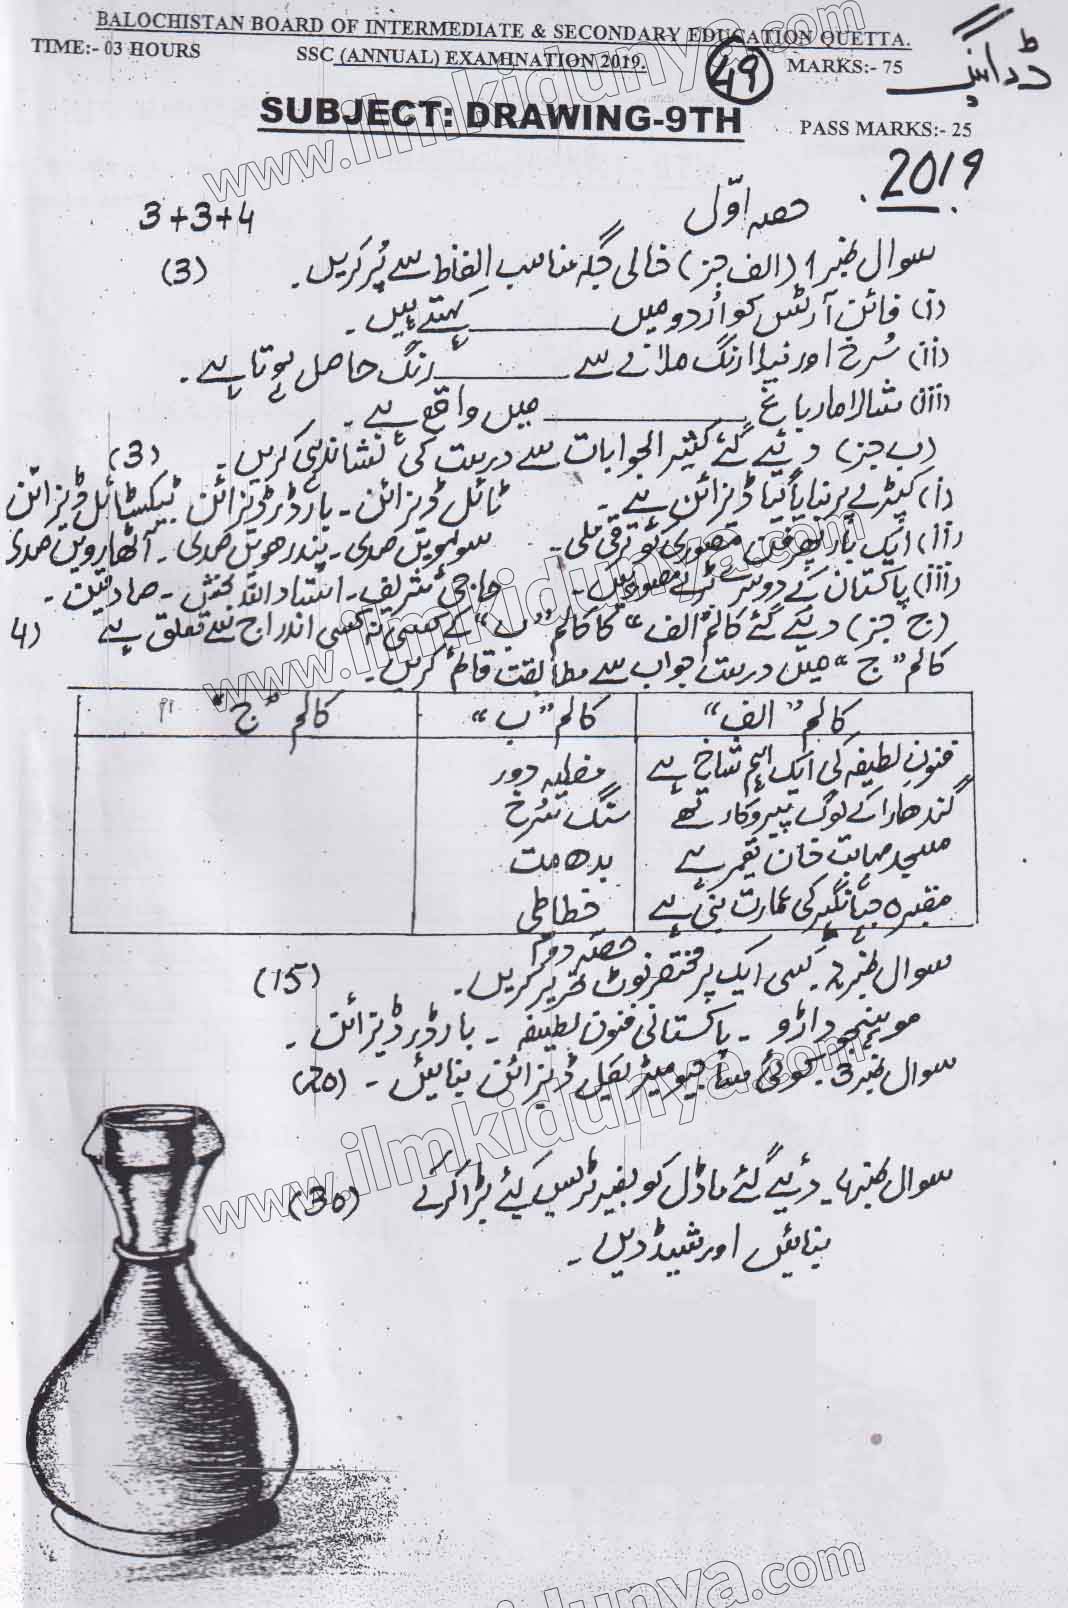 BALOCHISTAN BOARD OF INTERMEDIATE & SECONDARY EDUCATION QUETTA.
TIME:- 03 HOURS SSC (ANNUAL) EXAMINATION 2019. 49 MARKS:- 75 ڈرائنگ
SUBJECT: DRAWING-9TH
PASS MARKS:- 25
2019
حصہ اوّل
3+3+4
سوال نمبر 1 (الف جز) خالی جگہ مناسب الفاظ سے پُر کریں۔ (3)
(i) فائن آرٹس کو اُردو میں ________ کہتے ہیں۔
(ii) سُرخ اور نیلا رنگ ملانے سے ________ رنگ حاصل ہوتا ہے۔
(iii) شالامار باغ ________ میں واقع ہے
(ب جز) دیئے گئے کثیر الجوابات سے درست کی نشاندہی کریں۔ (3)
(i) کپڑے پر بنایا گیا ڈیزائن ہے۔ ٹائل ڈیزائن۔ بارڈر ڈیزائن ٹیکسٹائل ڈیزائن
(ii) ایک بار پھر فن مصوری کو ترقی ملی۔ سولہویں صدی۔ پندرھویں صدی۔ اٹھارویں صدی
(iii) پاکستان کے دوسرے بڑے مصور ہیں۔ حاجی شریف۔ استاد اللہ بخش۔ صادقین۔
(ج جز) دیئے گئے کالم "الف" کا کالم "ب" کے کسی نہ کسی اندراج سے تعلق ہے (4
کالم "ج" میں درست جواب سے مطابقت قائم کریں۔
کالم "الف" کالم "ب" کالم "ج"
فنونِ لطیفہ کی ایک اہم شاخ ہے مغلیہ دور
گندھارا کے لوگ پیروکار تھے سنگ سُرخ
مسجد مہابت خان تعمیر ہے بدھ مت
مقبرہ جہانگیر کی عمارت بنی ہے خطاطی
حصّہ دوم
سوال نمبر 2۔ کسی ایک پر مختصر نوٹ تحریر کریں۔ (15)
موہنجوداڑو ۔ پاکستانی فنون لطیفہ ۔ بارڈر ڈیزائن ۔
سوال نمبر 3۔ کوئی سا جیومیٹریکل ڈیزائن بنائیں ۔ (20)
سوال نمبر 4۔ دئیے گئے ماڈل کو بغیر ٹریس کیئے بڑا کر کے (30)
بنائیں اور شیڈ دیں ۔
www.ilmkidunya.com
www.ilmkidunya.com
www.ilmkidunya.com
www.ilmkidunya.com